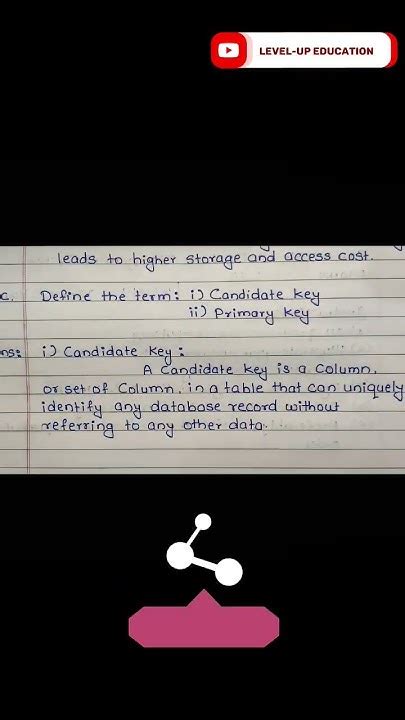 LEVEL-UP EDUCATION
leads to higher storage and access cost.
c. Define the term: i) Candidate key
ii) Primary key
ns: i) Candidate key:
A Candidate key is a Column,
or set of Column, in a table that can uniquely
identify any database record without
referring to any other data.